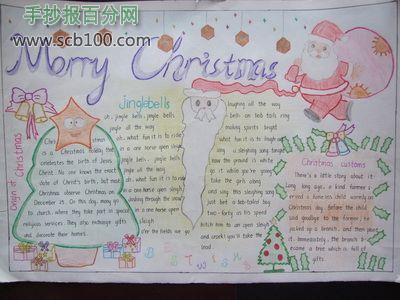 手抄报百分网
www.scb100.com
Morry Christmas
Origin of Christmas
Christmas
is a Christmas holiday that
celebrates the birth of Jesus
Christ. No one know the exact
date of Christ's birth, but most
Christmas observe Christmas on
December 25. On this day, many go
to church, where they take part in special
religious services. They also exchange gifts
and decorate their homes.
Jinglebells
oh, jingle bells, jingle bells,
jingle all the way
oh, what fun it is to ride
in a one horse open sleigh
jingle bells, jingle bells,
jingle all the way
oh, what fun it is to ride
in a one horse open sleigh
dashing through the snow
in a one horse open sleigh
o'er the fields we go
laughing all the way
bells on bob tails ring
making spirits bright
what fun it is to laugh and
sing a sleighing song tonight
now the ground is white
go it while you're young
take the girls along
and sing this sleighing song
just get a bob-tailed bay
two-forty as his speed
hitch him to an open sleigh
and crack! you'll take the
lead
Christmas customs
There's a little story about it:
Long long ago, a kind farmer
a homeless child warmly
on Christmas day. Before the child
said goodbye to the farmer, he
picked up a branch, and then plant
it. Immediately, the branch
became a tree which is full of
gifts.